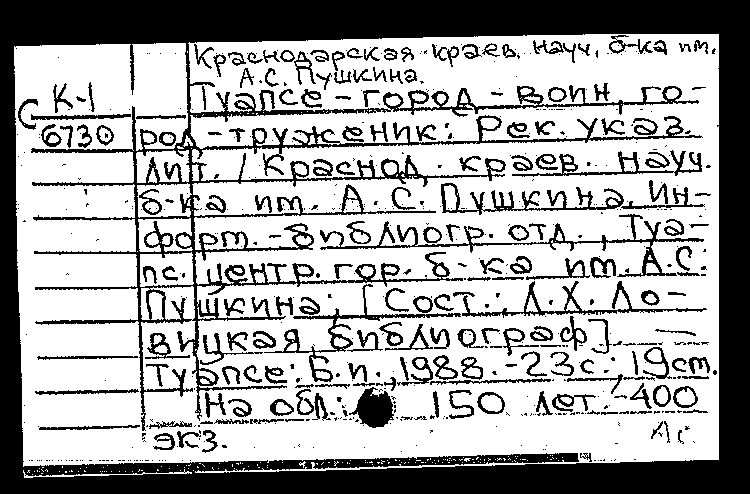 Краснодарская краев. науч. б-ка им.
А.С. Пушкина.
К-1
С
6730
Туапсе - город - воин, го-
род - труженик: Рек. указ.
лит. / Краснод. краев. науч.
б-ка им. А. С. Пушкина. Ин-
форм.-библиогр. отд., Туа-
пс. центр. гор. б-ка им. А.С.
Пушкина; [Сост.: Л.Х. Ло-
вицкая, библиограф]. —
Туапсе: Б.и., 1988. - 23 с.; 19 см.
На обл.: 150 лет. - 400
экз.